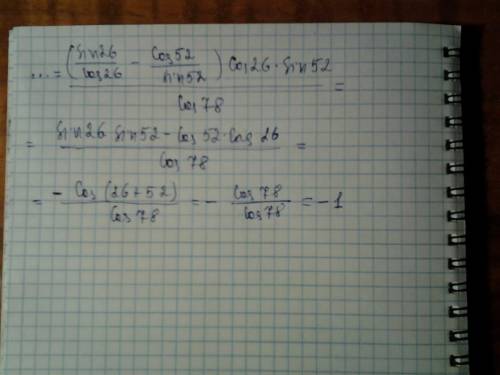 ...= (sin26/cos26 - cos52/sin52) cos26 · sin52 / cos78 =
= sin26 · sin52 - cos52 · cos26 / cos78 =
= - cos(26+52) / cos78 = - cos78 / cos78 = -1